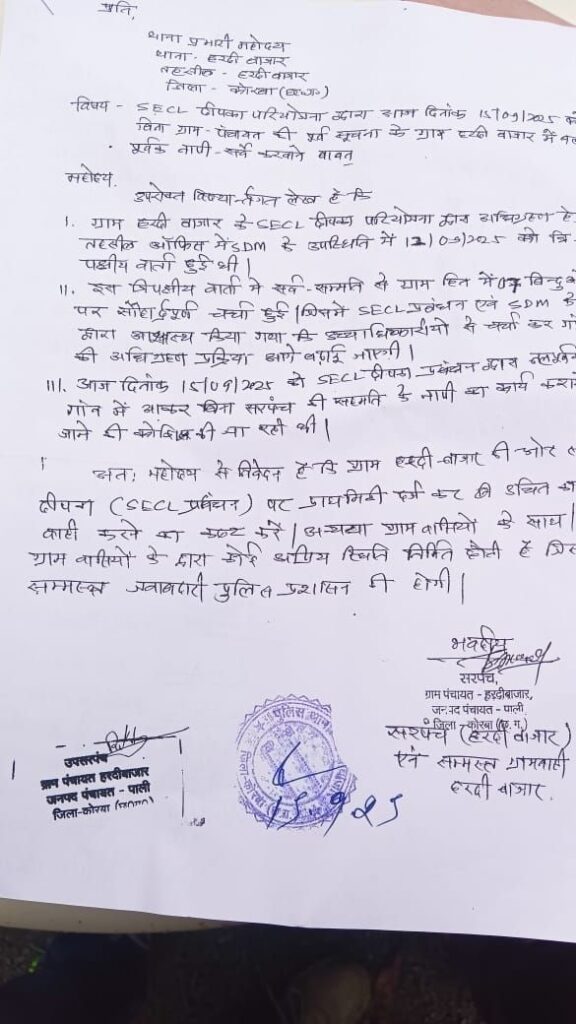 प्रति,
थाना प्रभारी महोदय
थाना - हरदी बाजार
तहसील - हरदीबाजार
जिला - कोरबा (छ.ग.)
विषय - SECL दीपका परियोजना द्वारा आज दिनांक 15/09/2025 को
बिना ग्राम-पंचायत की पूर्व सूचना के ग्राम हरदी बाजार में
पूर्वक नापी-सर्वे करवाने बाबत्
महोदय,
उपरोक्त विषयान्तर्गत लेख है कि
I. ग्राम हरदी बाजार के SECL दीपका परियोजना द्वारा अधिग्रहण हे
तहसील ऑफिस में SDM के उपस्थिति में 12/09/2025 को त्रि
पक्षीय वार्ता हुई थी।
II. इस त्रिपक्षीय वार्ता में सर्व-सम्मति से ग्राम हित में 07 बिन्दुओ
पर सौहार्दपूर्ण चर्चा हुई। जिसमें SECL प्रबंधन एवं SDM के
द्वारा आश्वस्त किया गया कि उच्चाधिकारीयो से चर्चा कर गां
की अधिग्रहण प्रक्रिया आगे बढ़ाई जाएगी।
III. आज दिनांक 15/09/2025 को SECL दीपका प्रबंधन द्वारा
गांव में आकर बिना सरपंच की सहमति के नापी का कार्य कराने
जाने की कोशिश की जा रही थी।
अतः महोदय से निवेदन है कि ग्राम हरदी-बाजार की ओर से
दीपका (SECL प्रबंधन) पर प्राथमिकी दर्ज कर उचित का
वाही करने का कष्ट करें। अन्यथा ग्राम वासियो के साथ।
ग्राम वासियों के द्वारा कोई अप्रिय स्थिति निर्मित होती है जिस
सम्मस्त जवाबदारी पुलिस प्रशासन की होगी।
भवदीय
सरपंच,
ग्राम पंचायत - हरदीबाजार,
जनपद पंचायत - पाली,
जिला - कोरबा (छ.ग.)
सरपंच (हरदी बाजार)
एवं सम्मस्त ग्रामवासी
हरदी बाजार.
उपसरपंच
ग्राम पंचायत हरदीबाजार
जनपद पंचायत - पाली
जिला-कोरबा
पुलिस थाना
15.9.25